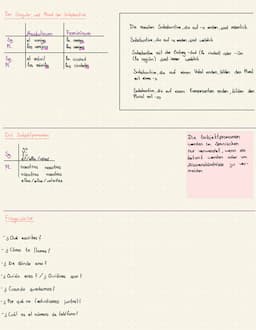 Der Singular und Plural der Substantive
Maskulinum Femininum
Sg. el amigo la amiga
Pl. los amigos las amigas
Sg. el móvil la ciudad
Pl. los móviles las ciudades
Die meisten Substantive, die auf -o enden, sind männlich
Substantive, die auf -a enden, sind weiblich
Substantive mit der Endung -dad (la ciudad) oder -ión
(la región) sind immer weiblich
Substantive, die auf einen Vokal enden, bilden den Plural
mit eines -s
Substantive, die auf einen Konsonanten enden, bilden den
Plural mit -es
Die Subjektpronomen
Sg. yo
tú
él/ella/usted
Pl. nosotros nosotras
vosotros vosotras
ellos/ellas/ustedes
Die Subjektpronomen
werden im Spanischen
nur verwendet, wenn sie
betont werden oder um
Missverständnisse zu ver-
meiden
Fragewörter
- ¿Qué escribes?
- ¿Cómo te llamas?
- ¿De dónde eres?
- ¿Quién eres? / ¿Quiénes son?
- ¿Cuándo quedamos?
- ¿Por qué no (estudiamos juntos)?
- ¿Cuál es el número de teléfono?